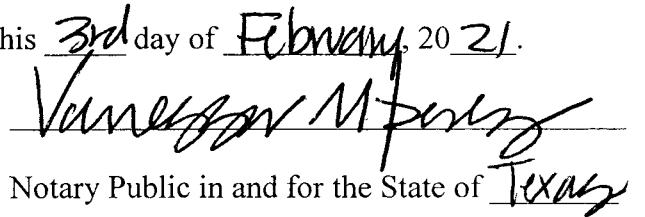 his 3rd day of February, 20 21.
Vanessa M Perez
Notary Public in and for the State of Texas